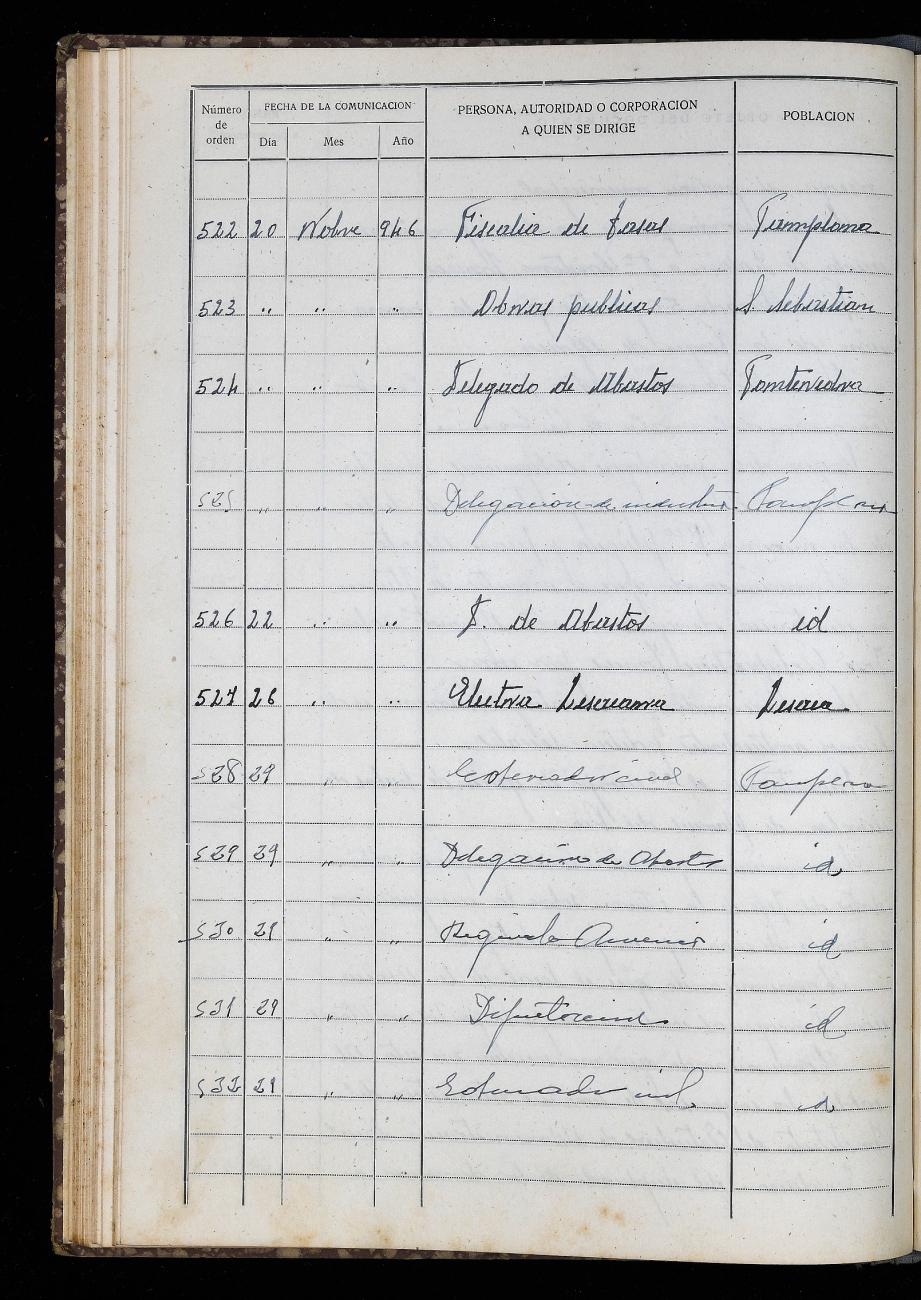 Número de orden FECHA DE LA COMUNICACION PERSONA, AUTORIDAD O CORPORACION A QUIEN SE DIRIGE POBLACION
Día Mes Año
522 20 Nobre 946 Fiscalia de tasas Pamplona
523 " " " Obras publicas S Sebastian
524 " " " Delegado de Abastos Pontevedra
525 " " " Delegacion de industria Pamplona
526 22 " " D. de Abastos id
527 26 " " Electra Lesacana Lesaca
528 29 " " Gobernador civil Pamplona
529 29 " " Delegacion de Abastos id
530 29 " " id
531 29 " " Diputacion id
532 29 " " Gobernador civil id